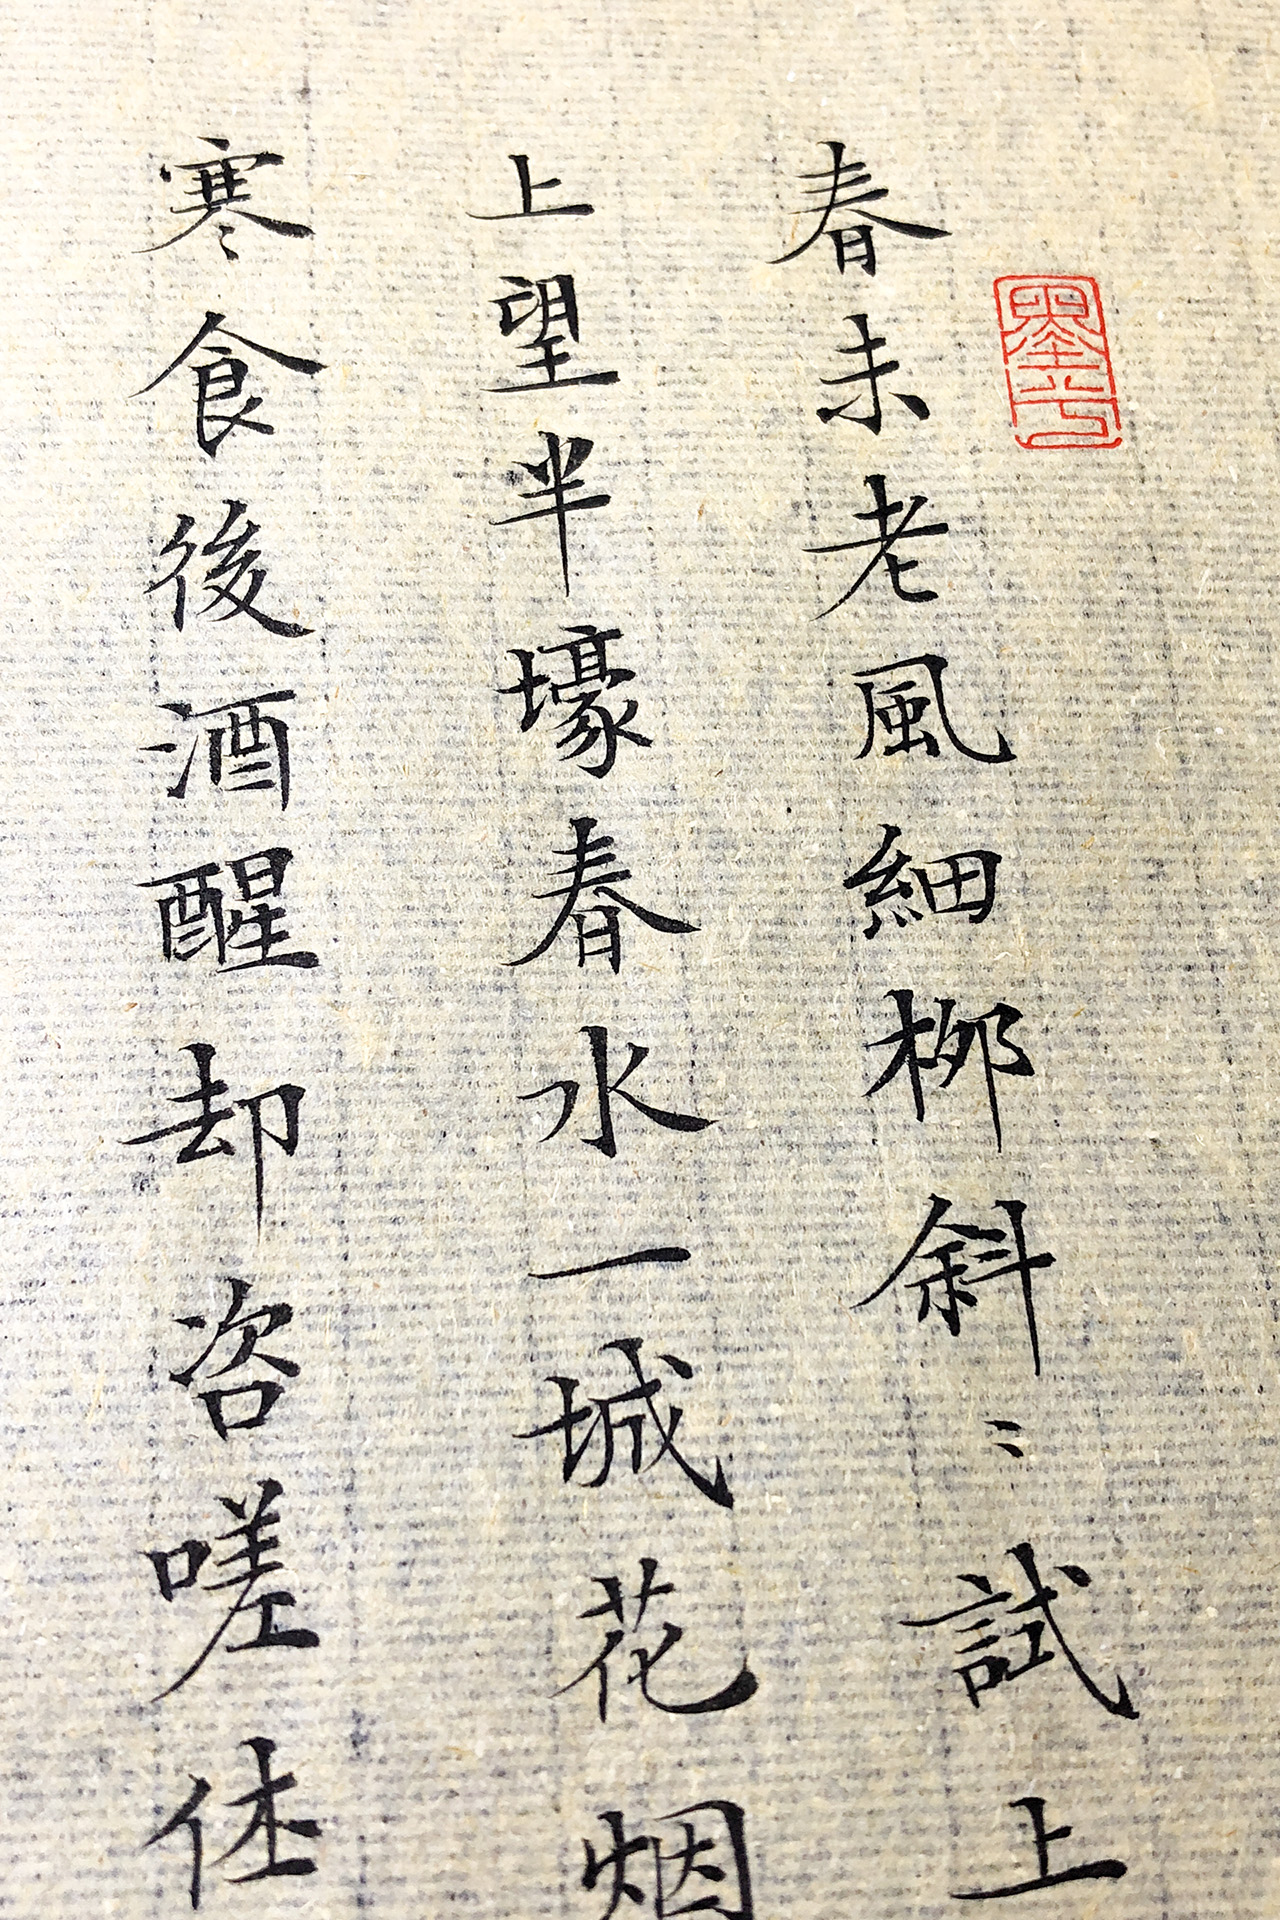 春未老風細柳斜〻試上
上望半壕春水一城花烟
寒食後酒醒却咨嗟休